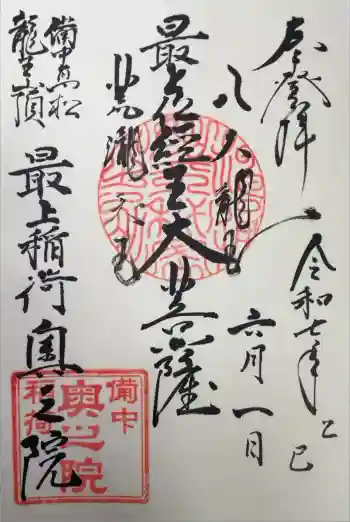 奉登拝
令和七年 乙巳
六月一日
八大龍王
最上位經王大菩薩
瀧天王
備中高松
龍王山頂
最上稲荷奥之院
備中
奥之院
稲荷